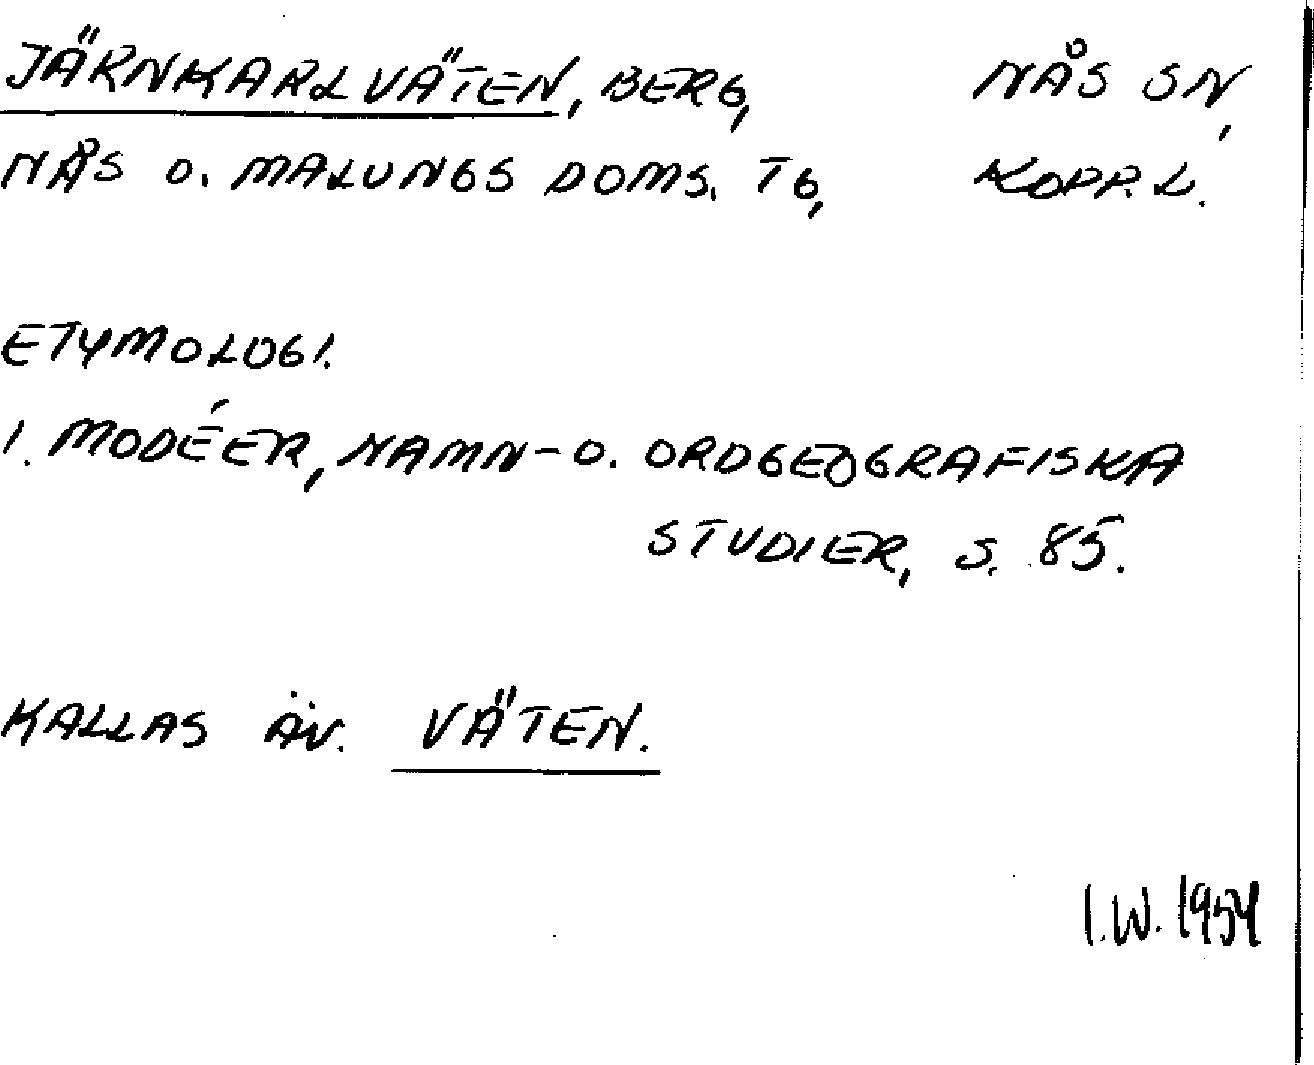 JÄRNKARLVÄTEN, BERG, NÅS SN,
NÅS O. MALUNGS DOMS. TG, KOPP. L.
ETYMOLOGI.
I. MODÉER, NAMN- O. ORDGEOGRAFISKA
STUDIER, S. 85.
KALLAS ÄV. VÄTEN.
I.W. 1954